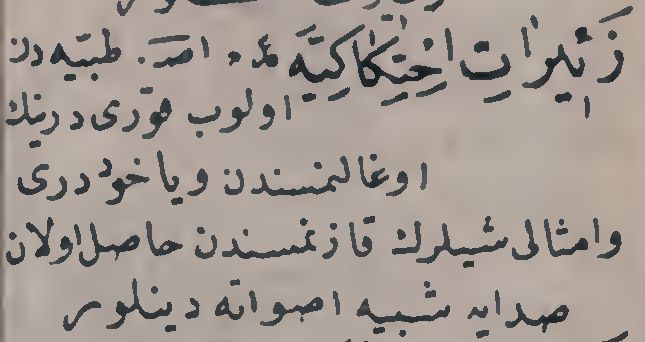 زَئيرَاتِ اِحْتِكَاكِيَّه مد. اصـ. طبيه دن
اولوب قورى درينك
اوغالنمسندن وياخود درى
وامثالى شيلرك قازنمسندن حاصل اولان
صدايه شبيه اصواته دينلور